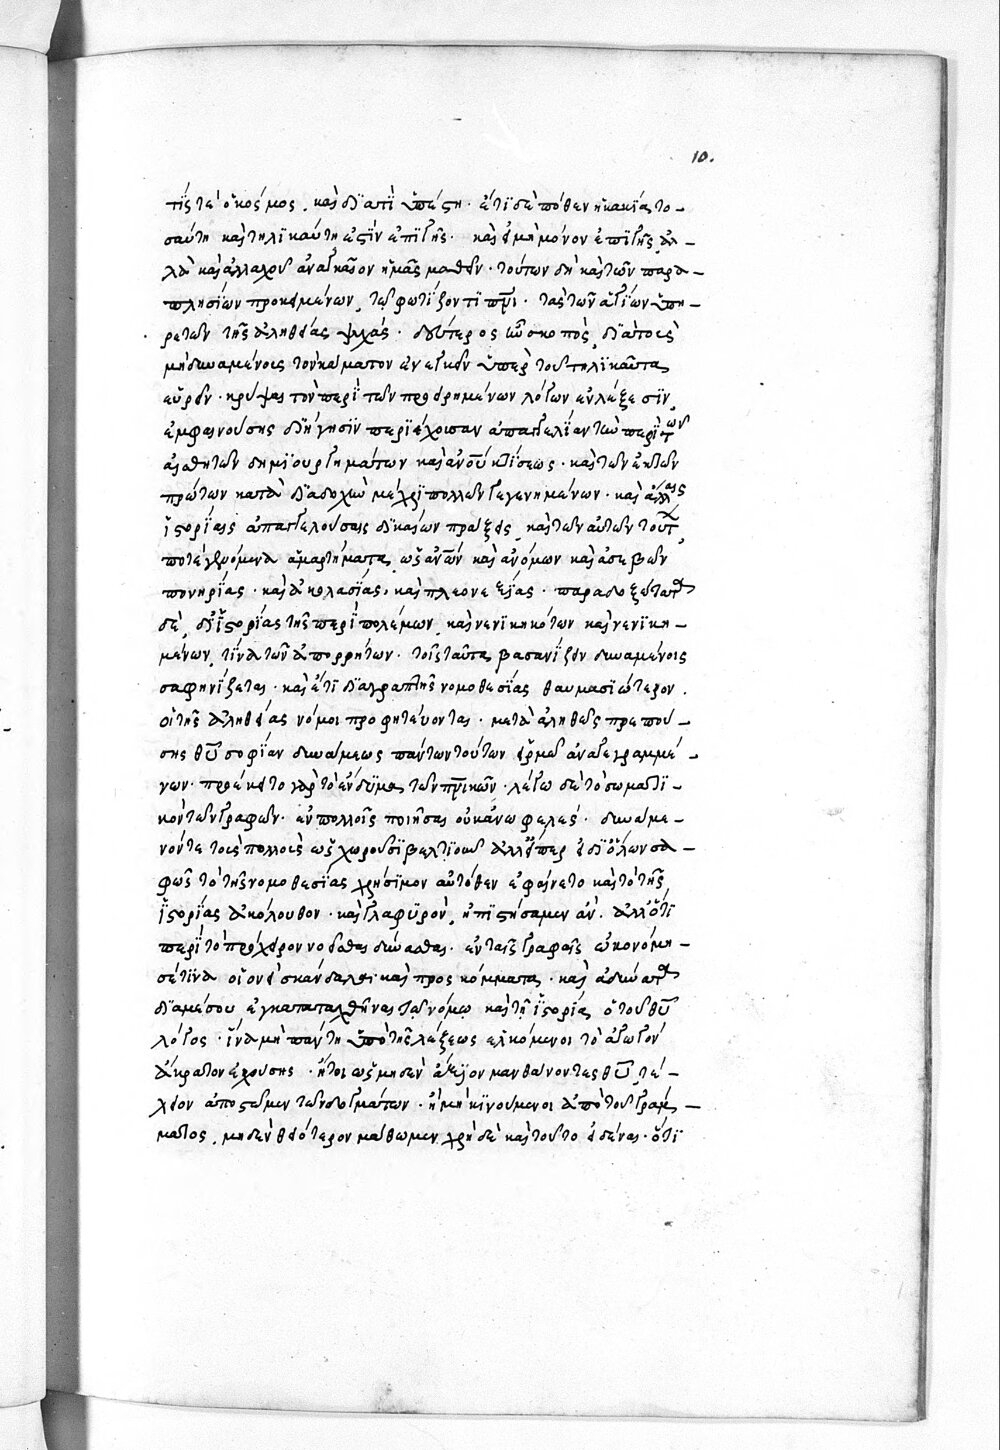 10.
τίς τε ὁ κόσμος, καὶ διατί ὑπέστη. ἔτι δὲ πόθεν ἡ κακία το-
σαύτη καὶ τηλικαύτη ἐστὶν ἐπὶ γῆς· καὶ εἰ μὴ μόνον ἐπὶ γῆς, ἀλ-
λὰ καὶ ἀλλαχοῦ ἀναγκαῖον ἡμᾶς μαθεῖν. τούτων δὴ καὶ τῶν παρα-
πλησίων προκειμένων, τῷ φωτίζοντι πνι. τὰς τῶν ἁγίων ὑπη-
ρετῶν τῆς ἀληθείας ψυχάς. δεύτερος ἦν σκοπὸς, διὰ τοὺς
μὴ δυναμένους τὸν κάματον ἐνεγκεῖν ὑπὲρ τοῦ τηλικαῦτα
εὑρεῖν. κρύψαι τὸν περὶ τῶν προειρημένων λόγον ἐν λέξεσιν,
ἐμφαινούσης διήγησιν περιέχουσαν ἀπαγγελίαν τὴν περὶ τῶν
αἰσθητῶν δημιουργημάτων καὶ ἀνου κτίσεως. καὶ τῶν ἐκ τῶν
πρώτων κατὰ διαδοχὴν μέχρι πολλῶν γεγενημένων. καὶ ἄλλαις
ἱστορίαις ἀπαγγελούσαις δικαίων πράξεις, καὶ τῶν αὐτῶν τούτων
ποτὲ γενόμενα ἁμαρτήματα, ὡς ἀνων καὶ ἀνόμων καὶ ἀσεβῶν
πονηρίας. καὶ ἀκολασίας, καὶ πλεονεξίας. παραδοξότατα
δὲ, δι' ἱστορίας τῆς περὶ πολέμων, καὶ νενικηκότων καὶ νενικη-
μένων, τινὰ τῶν ἀπορρήτων. τοῖς ταῦτα βασανίζειν δυναμένοις
σαφηνίζεται. καὶ ἔτι διὰ γραπτῆς νομοθεσίας θαυμασιώτερον.
οἱ τῆς ἀληθείας νόμοι προφητεύονται. μετὰ ἀληθῶς πρεπού-
σης θυ σοφίαν δυνάμεως πάντων τούτων εἱρμῷ ἀναγεγραμμέ-
νων. προέκειτο γὰρ τὸ ἔνδυμα τῶν πνικῶν. λέγω δὲ τὸ σωματι-
κὸν τῶν γραφῶν. ἐν πολλοῖς ποιῆσαι οὐκ ἀνωφελές. δυνάμε-
νόν τε τοὺς πολλοὺς ὡς χωροῦσι βελτιοῦν ἀλλ' εἴπερ εἰ δι' ὅλων σα-
φῶς τὸ τῆς νομοθεσίας χρήσιμον αὐτόθεν ἐφαίνετο καὶ τὸ τῆς
ἱστορίας ἀκόλουθον. καὶ γλαφυρὸν, ἠπιστήσαμεν ἄν. ἄλλο τι
περὶ τὸ πρόχειρον νοεῖσθαι δύνασθαι. ἐν ταῖς γραφαῖς ᾠκονόμη-
σέ τινα οἱονεὶ σκάνδαλα καὶ προσκόμματα. καὶ ἀδύνατα
διαμέσου ἐγκαταταχθῆναι τῷ νόμῳ καὶ τῇ ἱστορίᾳ ὁ τοῦ θυ
λόγος. ἵνα μὴ πάντη ὑπὸ τῆς λέξεως ἑλκόμενοι τὸ ἀγωγὸν
ἄκρατον ἐχούσης. ἤτοι ὡς μηδὲν ἄξιον μανθάνοντες θυ, τέ-
λεον ἀποστῶμεν τῶν δογμάτων. ἢ μὴ κινούμενοι ἀπὸ τοῦ γράμ-
ματος, μηδὲν θειότερον μάθωμεν. χρὴ δὲ καὶ τοῦτο εἰδέναι. ὅτι